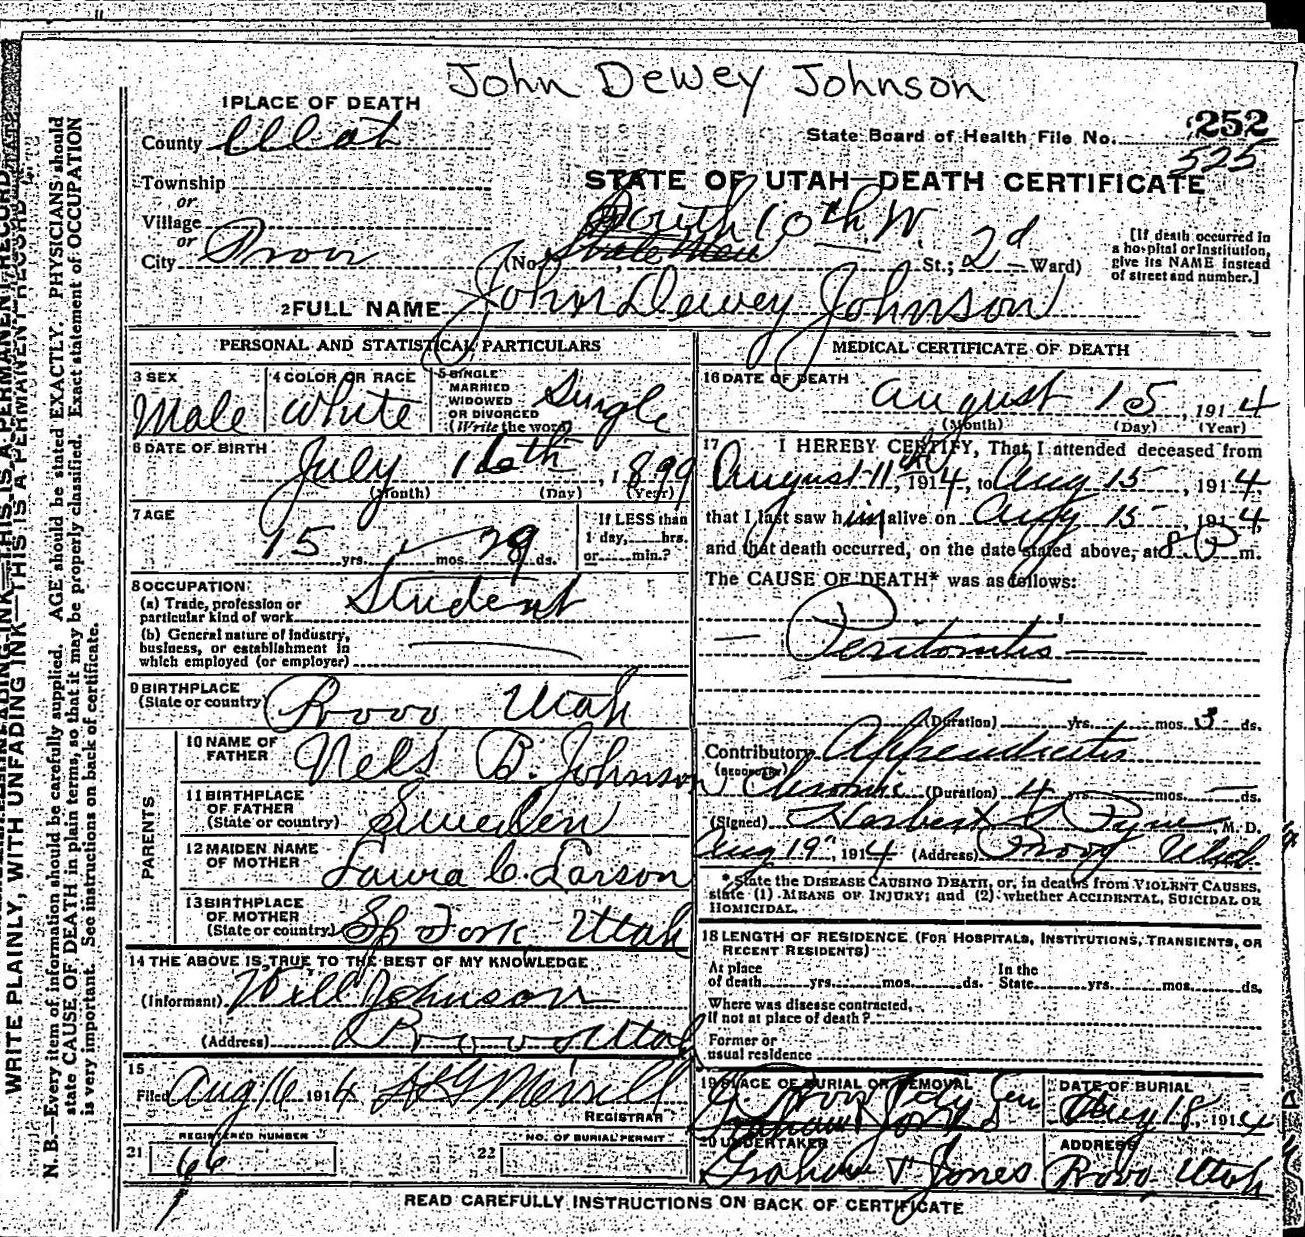 John Dewey Johnson
1 PLACE OF DEATH
County Utah
State Board of Health File No. 252
525
Township
or
STATE OF UTAH—DEATH CERTIFICATE
Village
or
South 10th W.
City Provo (No. St.; 2d Ward)
[If death occurred in a hospital or institution, give its NAME instead of street and number.]
2 FULL NAME John Dewey Johnson
PERSONAL AND STATISTICAL PARTICULARS
3 SEX
Male
4 COLOR OR RACE
White
5 SINGLE
MARRIED
WIDOWED
OR DIVORCED
(Write the word)
Single
6 DATE OF BIRTH
July 16th, 1899
(Month) (Day) (Year)
7 AGE
15 yrs. mos. 29 ds.
If LESS than
1 day, hrs.
or min.?
8 OCCUPATION
(a) Trade, profession or
particular kind of work Student
(b) General nature of industry,
business, or establishment in
which employed (or employer)
9 BIRTHPLACE
(State or country) Provo, Utah
PARENTS
10 NAME OF
FATHER Nels B. Johnson
11 BIRTHPLACE
OF FATHER
(State or country) Sweden
12 MAIDEN NAME
OF MOTHER Laura C. Larson
13 BIRTHPLACE
OF MOTHER
(State or country) Sp Fork, Utah
14 THE ABOVE IS TRUE TO THE BEST OF MY KNOWLEDGE
(Informant) Will Johnson
(Address) Provo Utah
15
Filed Aug 16 1914 Merrill
REGISTRAR
REGISTERED NUMBER
21 66
NO. OF BURIAL PERMIT
22
MEDICAL CERTIFICATE OF DEATH
16 DATE OF DEATH
August 15, 1914
(Month) (Day) (Year)
17 I HEREBY CERTIFY, That I attended deceased from
August 11, 1914, to Aug 15, 1914
that I last saw him alive on Aug 15, 1914
and that death occurred, on the date stated above, at 8 P m.
The CAUSE OF DEATH* was as follows:
— Peritonitis —
(Duration) yrs. mos. 3 ds.
Contributory Appendicitis
(SECONDARY)
Chronic (Duration) 4 yrs. mos. ds.
(Signed) Herbert G Pyne, M. D.
Aug 19", 1914 (Address) Provo Utah
* State the DISEASE CAUSING DEATH, or, in deaths from VIOLENT CAUSES,
state (1) MEANS OF INJURY; and (2) whether ACCIDENTAL, SUICIDAL OR
HOMICIDAL.
18 LENGTH OF RESIDENCE (FOR HOSPITALS, INSTITUTIONS, TRANSIENTS, OR
RECENT RESIDENTS)
At place
of death yrs. mos. ds.
In the
State yrs. mos. ds.
Where was disease contracted,
if not at place of death?
Former or
usual residence
19 PLACE OF BURIAL OR REMOVAL
Provo City Cem
DATE OF BURIAL
Aug 18, 1914
20 UNDERTAKER
Graham & Jones
ADDRESS
Provo, Utah
READ CAREFULLY INSTRUCTIONS ON BACK OF CERTIFICATE
WRITE PLAINLY, WITH UNFADING INK—THIS IS A PERMANENT RECORD
N. B.—Every item of information should be carefully supplied. AGE should be stated EXACTLY. PHYSICIANS should
state CAUSE OF DEATH in plain terms, so that it may be properly classified. Exact statement of OCCUPATION
is very important. See instructions on back of certificate.